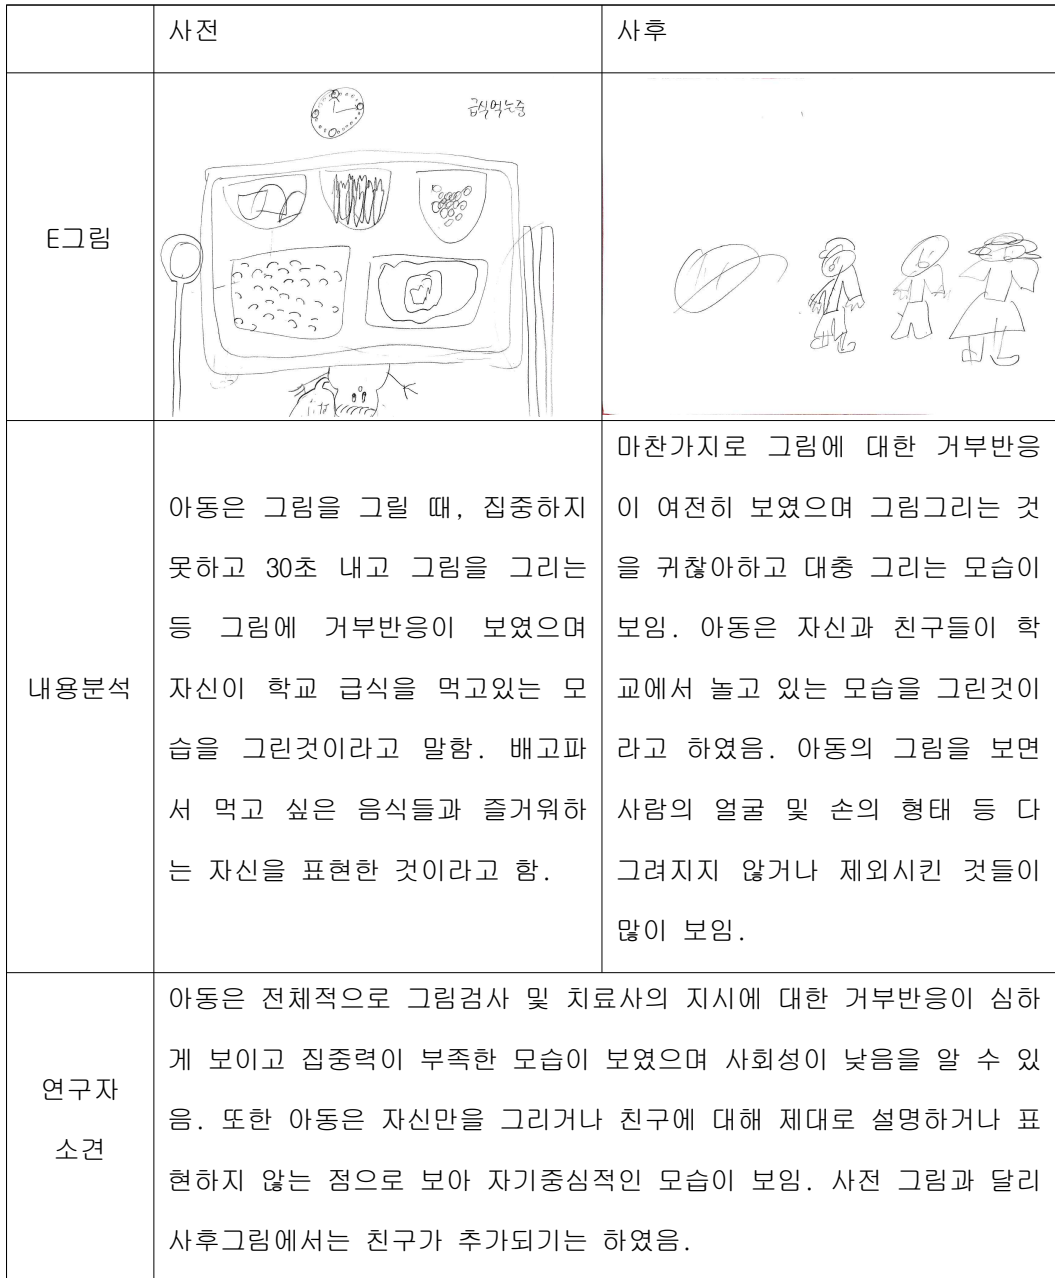 사전
사후
E그림
급식먹는중
내용분석
아동은 그림을 그릴 때, 집중하지
못하고 30초 내고 그림을 그리는
등 그림에 거부반응이 보였으며
자신이 학교 급식을 먹고있는 모
습을 그린것이라고 말함. 배고파
서 먹고 싶은 음식들과 즐거워하
는 자신을 표현한 것이라고 함.
마찬가지로 그림에 대한 거부반응
이 여전히 보였으며 그림그리는 것
을 귀찮아하고 대충 그리는 모습이
보임. 아동은 자신과 친구들이 학
교에서 놀고 있는 모습을 그린것이
라고 하였음. 아동의 그림을 보면
사람의 얼굴 및 손의 형태 등 다
그려지지 않거나 제외시킨 것들이
많이 보임.
연구자
소견
아동은 전체적으로 그림검사 및 치료사의 지시에 대한 거부반응이 심하
게 보이고 집중력이 부족한 모습이 보였으며 사회성이 낮음을 알 수 있
음. 또한 아동은 자신만을 그리거나 친구에 대해 제대로 설명하거나 표
현하지 않는 점으로 보아 자기중심적인 모습이 보임. 사전 그림과 달리
사후그림에서는 친구가 추가되기는 하였음.